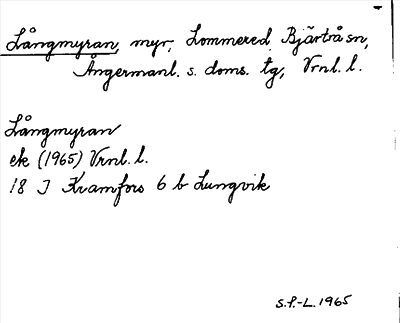 Långmyran, myr, Lommered, Bjärtrå sn,
Ångermanl. s. doms. tg, Vrnl. l.
Långmyran
ek (1965) Vrnl. l.
18 J Kramfors 6 b Lungvik
S.f.-L. 1965